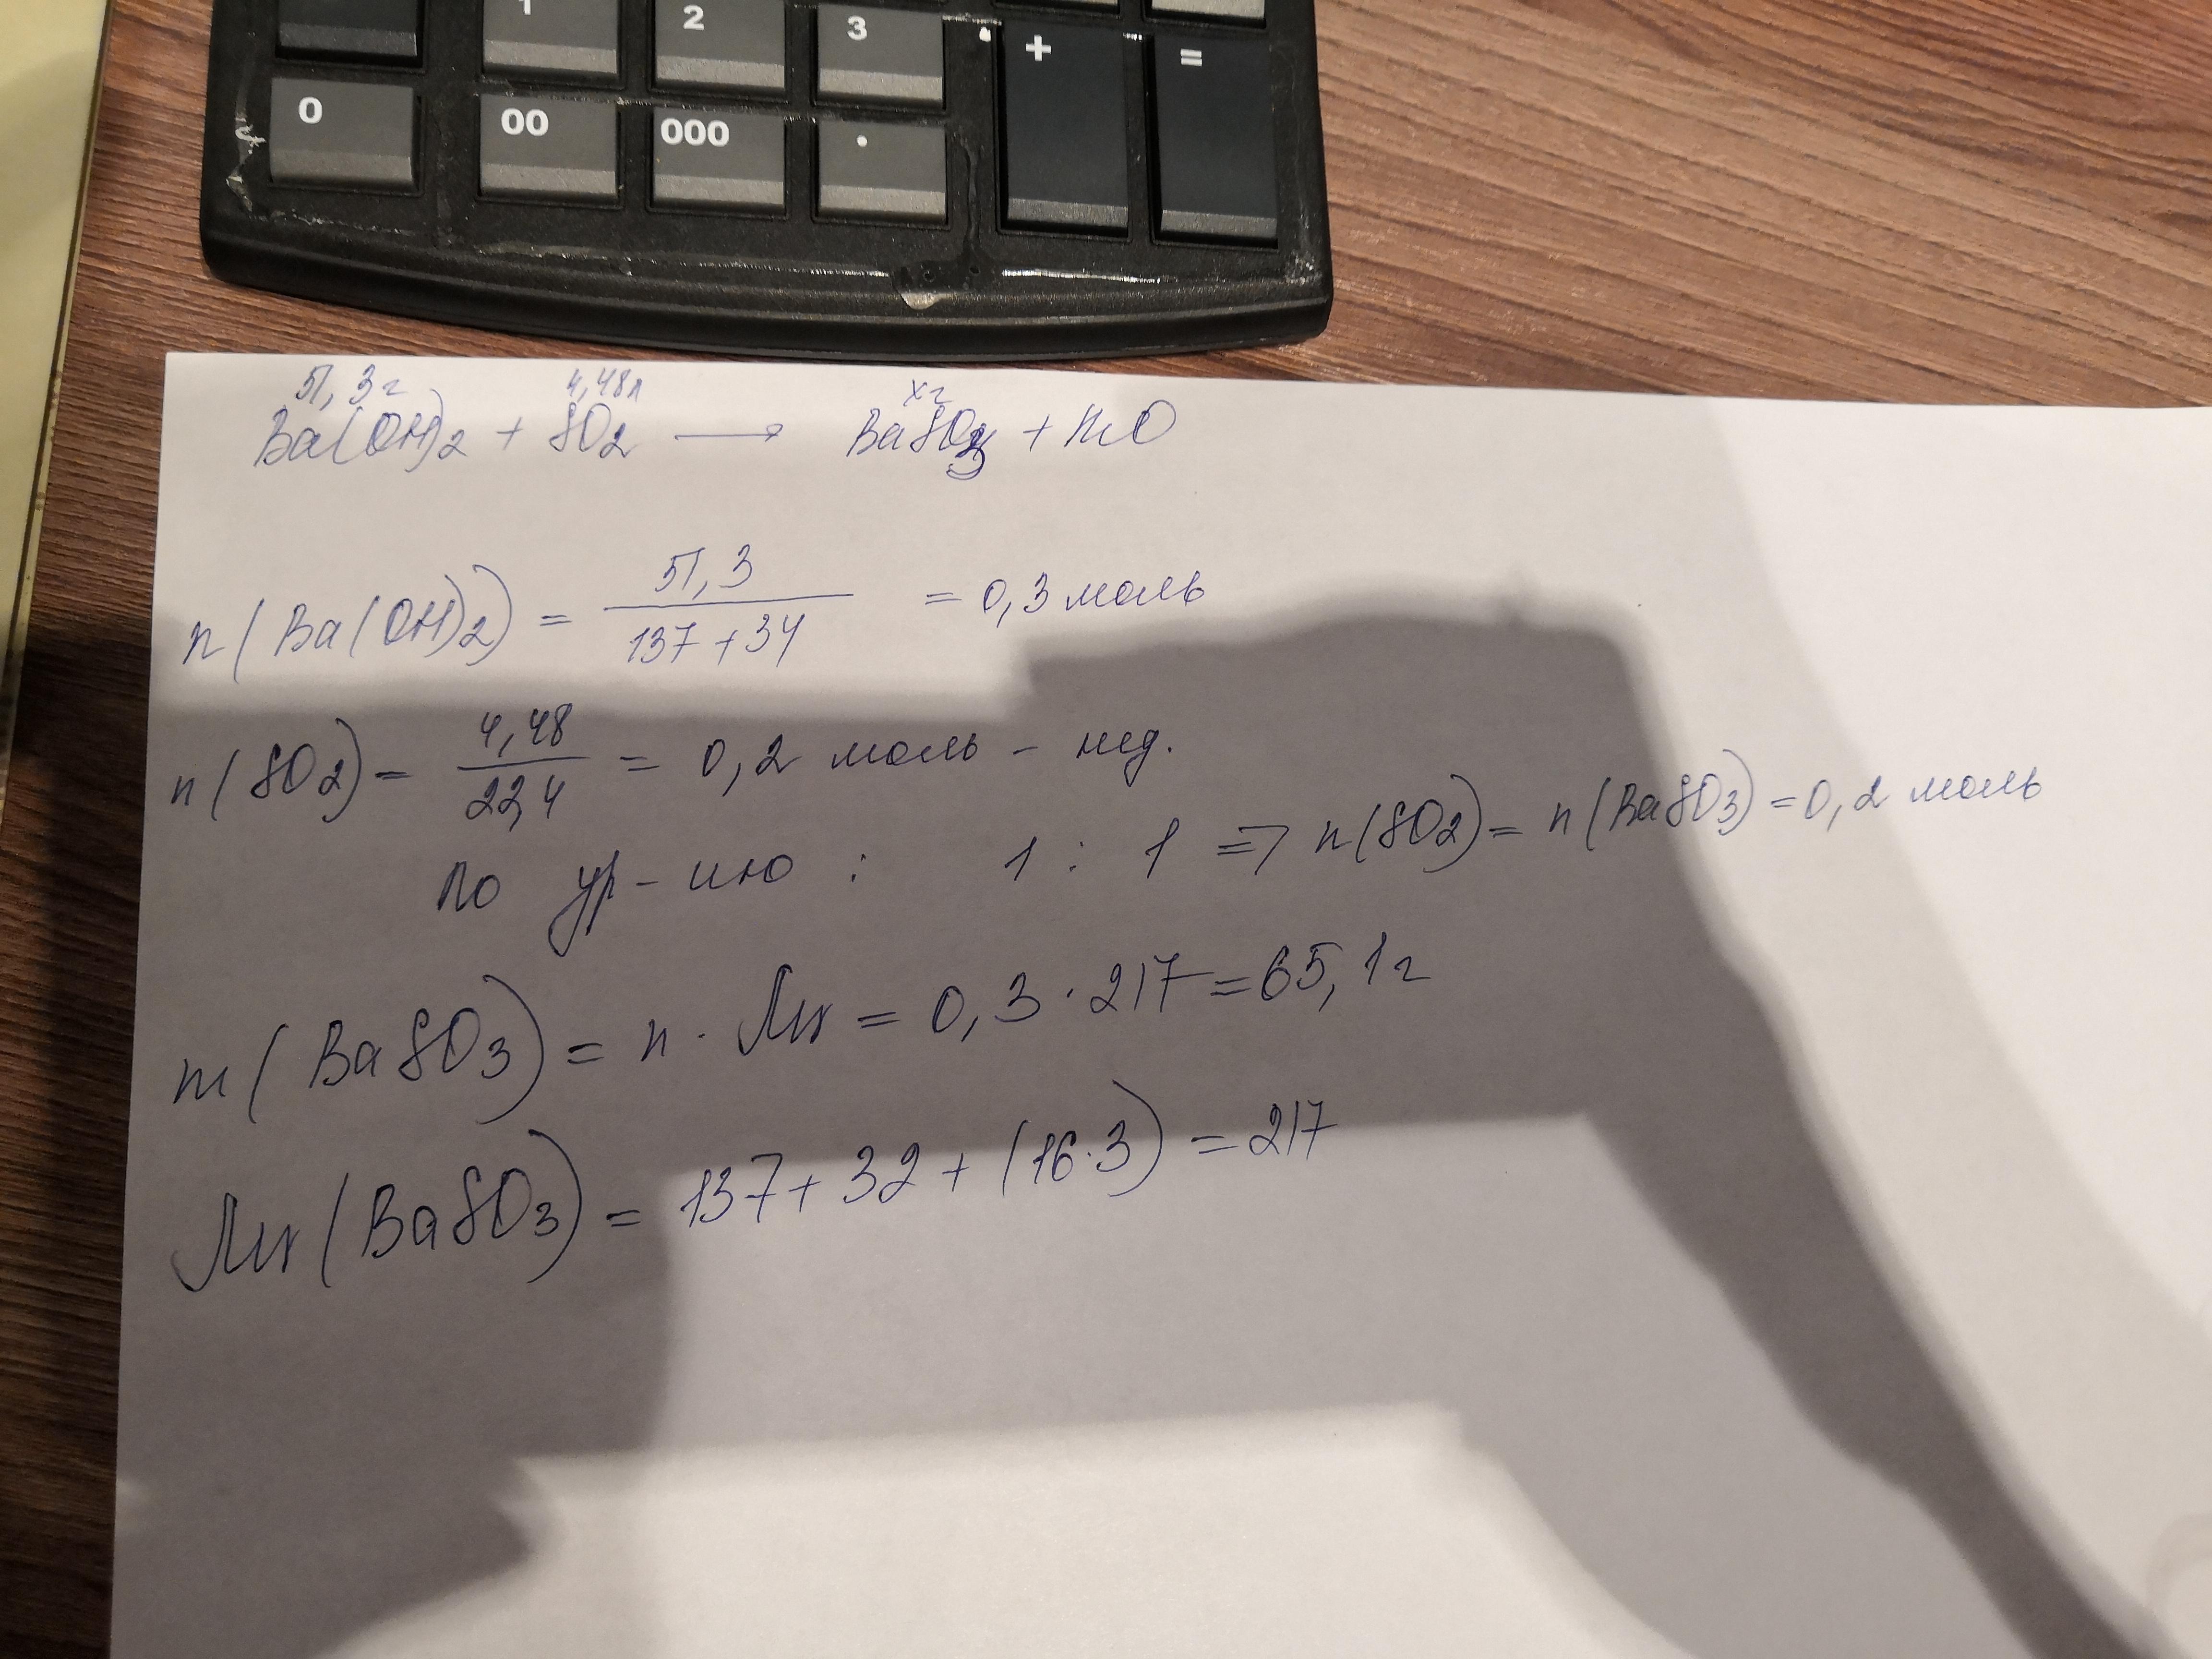 1 2 3 + =
0 00 000 .
51,3 г 4,48 л x г
Ba(OH)2 + SO2 → BaSO3 + H2O
n(Ba(OH)2) = 51,3 / 137+34 = 0,3 моль
n(SO2) = 4,48 / 22,4 = 0,2 моль - нед.
по ур-ию : 1 : 1 => n(SO2) = n(BaSO3) = 0,2 моль
m(BaSO3) = n · Mr = 0,3 · 217 = 65,1 г
Mr(BaSO3) = 137 + 32 + (16·3) = 217